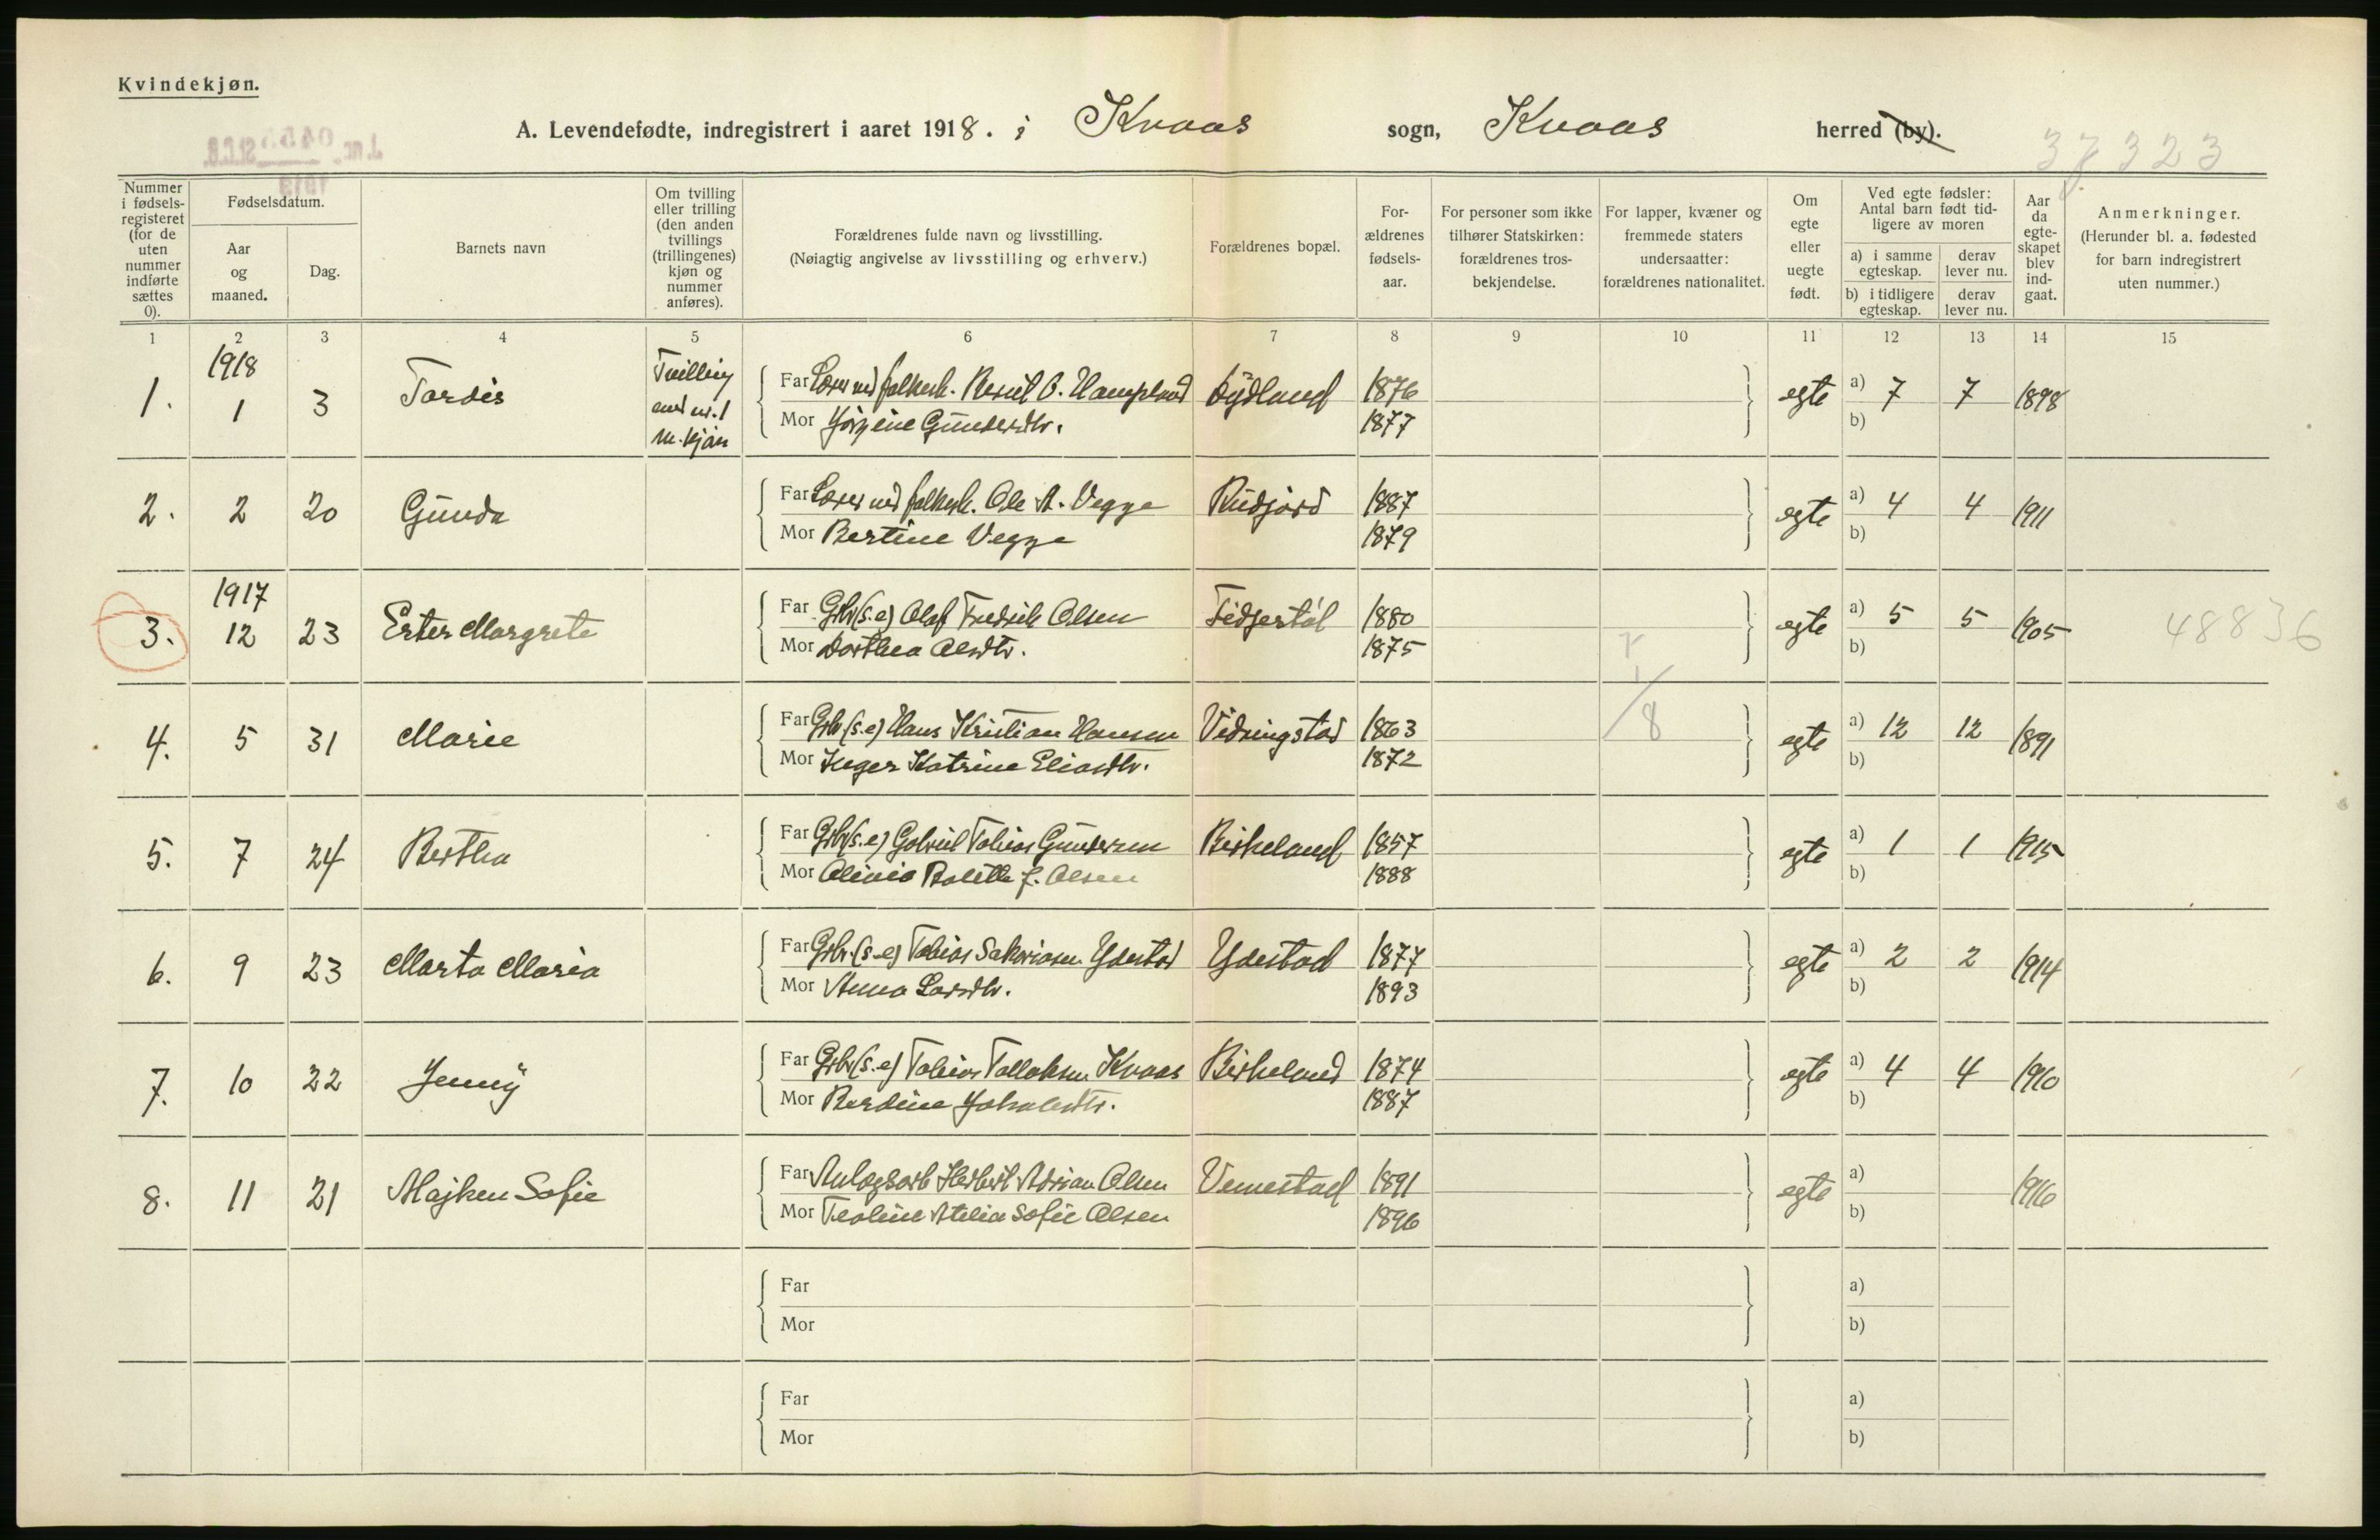 Kvindekjøn.
A. Levendefødte, indregistrert i aaret 1918. i Kvaas sogn, Kvaas herred (by).
37323
Nummer i fødselsregisteret (for de uten nummer indførte sættes 0).
Fødselsdatum.
Aar og maaned.
Dag.
Barnets navn
Om tvilling eller trilling (den anden tvillings (trillingenes) kjøn og nummer anføres).
Forældrenes fulde navn og livsstilling.
(Nøiagtig angivelse av livsstilling og erhverv.)
Forældrenes bopæl.
Forældrenes fødselsaar.
For personer som ikke tilhører Statskirken: forældrenes trosbekjendelse.
For lapper, kvæner og fremmede staters undersaatter: forældrenes nationalitet.
Om egte eller uegte født.
Ved egte fødsler: Antal barn født tidligere av moren
a) i samme egteskap.
derav lever nu.
b) i tidligere egteskap.
derav lever nu.
Aar da egteskapet blev indgaat.
Anmerkninger.
(Herunder bl. a. fødested for barn indregistrert uten nummer.)
1 2 3 4 5 6 7 8 9 10 11 12 13 14 15
1. 1918 1 3 Tordis Tvilling med nr. 1 m. kjøn
Far Lærer ved folkesk. Berent O. Hampland Lydland 1876 egte a) 7 7 1898
Mor Jørgine Gundersdtr. 1877 b)
2. 2 20 Gunda
Far Lærer ved folkesk. Ole A. Vegge Rudjord 1887 egte a) 4 4 1911
Mor Bertine Vegge 1879 b)
3. 1917 12 23 Ester Margrete
Far Grbr (s.e) Olaf Fredrik Olsen Fidjestøl 1880 egte a) 5 5 1905 48836
Mor Dorthea Olsdtr. 1875 b)
4. 5 31 Marie
Far Grbr (s.e) Hans Kristian Hansen Vidringstad 1863 8 egte a) 12 12 1891
Mor Inger Katrine Eliasdtr. 1872 b)
5. 7 24 Bertha
Far Grbr (s.e) Gabriel Tobias Gundersen Birkeland 1857 egte a) 1 1 1915
Mor Olivia Bolette f. Olsen 1888 b)
6. 9 23 Marta Maria
Far Grbr. (s.e) Tobias Sakariasen Ydestad Ydestad 1877 egte a) 2 2 1914
Mor Anna Larsdtr. 1893 b)
7. 10 22 Jenny
Far Grbr (s.e) Tobias Tallaksen Kvaas Birkeland 1874 egte a) 4 4 1910
Mor Berdine Johalsdtr. 1887 b)
8. 11 21 Majken Sofie
Far Anlægsarb Herbert Adrian Olsen Vemestad 1891 egte a) 1916
Mor Teoline Atelia Sofie Olsen 1896 b)
Far a)
Mor b)
Far a)
Mor b)